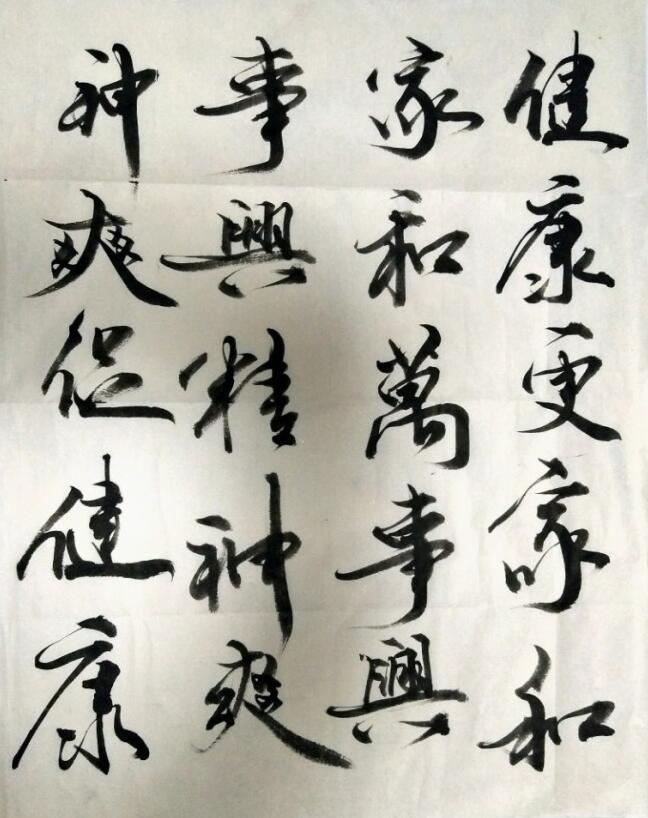 健康更家和
家和萬事興
事興精神爽
神爽促健康